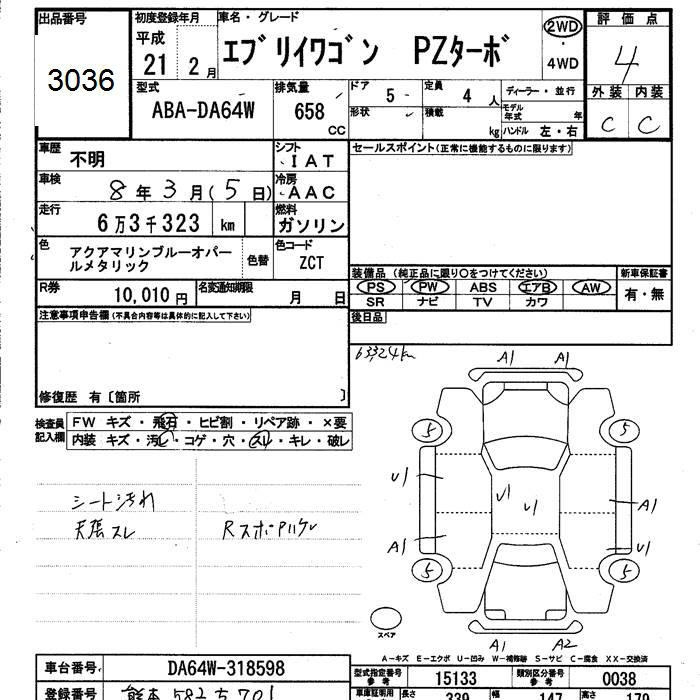 出品番号
3036
初度登録年月
平成
21 2 月
車名・グレード
エブリイワゴン PZターボ
2WD
・
4WD
評価点
4
外装 内装
C C
型式
ABA-DA64W
排気量
658
CC
ドア
5
定員
4 人
形状
積載
kg
ディーラー・並行
モデル年式 年
ハンドル 左・右
車歴
不明
シフト
IAT
車検
8 年 3 月(5 日)
冷房
AAC
走行
6万3千323 km
燃料
ガソリン
色
アクアマリンブルーオパールメタリック
色替
色コード
ZCT
R券
10,010 円
名変通知期限
月 日
セールスポイント(正常に機能するものに限ります)
装備品(純正品に限り○をつけてください)
PS PW ABS エアB AW
SR ナビ TV カワ
新車保証書
有・無
後日品
注意事項申告欄(不具合内容等は具体的に記入して下さい)
修復歴 有〔箇所 〕
63324km
検査員記入欄
FW キズ・飛石・ヒビ割・リペア跡・×要
内装 キズ・汚レ・コゲ・穴・スレ・キレ・破レ
シート汚れ
天張スレ
Rスポイラハゲ
A1 A1
5 5
U1
U1
U1
A1
A1
U1
5 5
スペア
A1 A2
A-キズ E-エクボ U-凹み W-補修跡 S-サビ C-腐食 XX-交換済
車台番号
DA64W-318598
型式指定番号
参考
15133
類別区分番号
参考
0038
登録番号
熊本 582 ち 701
車庫証明用
長さ
339
幅
147
高さ
179